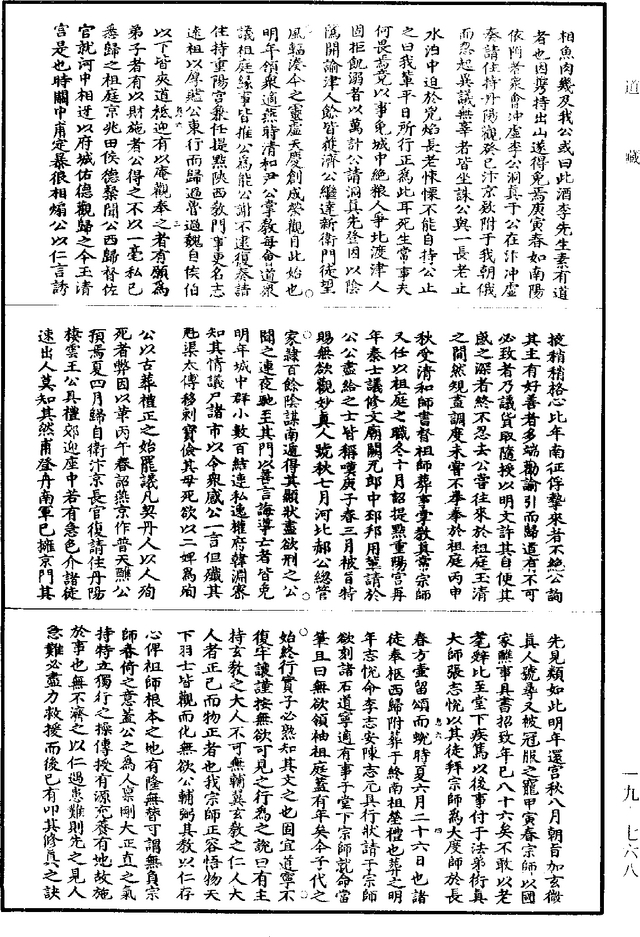 道藏
相魚肉幾及我公或曰此酒李先生素有道
者也因縛持出山遂得免焉庚寅春如南陽
依丹者眾會冲虛李公洞真于公在汴冲虛
奏請住持丹陽觀癸巳汴京款附于我朝俄
而忽起異議無辜者皆坐誅公與一長老止
水泊中迫於兇焰長老悚慄不能自持公止
之曰我輩平日所行正為此耳死生常事夫
何畏焉竟以事免城中絕粮人爭北渡津人
因拒飢溺者以萬計公請洞真先登因以陰
隲開諭津人飢皆獲濟公繼達新衛門徒望
風輻湊今之靈虛天慶創成榮觀自此始也
明年領眾適燕時清和尹公掌教每會道眾
議祖庭緣事皆推公為能公謝不逮復奏請
住持重陽宮兼任提點陝西教門事更名志
遠祖以犀毯公東行而歸過魯過魏自侯伯
以下皆夾道祗迎有以庵觀奉之者有願為
弟子者有以財施者公得之不以一毫私已
悉歸之祖庭京兆田侯德粲聞公西歸督佐
官就河中相迓以府城佑德觀歸之今玉清
宮是也時關中甫定暴狠相煽公以仁言誘
掖稍稍格心比年南征俘擊來者不絕公詢
其主有好善者多端勸諭引而歸道有不可
必致者乃議貨取隨授以明文許其自便其
感之深者終不忍去公嘗往來於祖庭玉清
之間然規蓋調度未嘗不拳拳於祖庭丙申
秋受清和師書督祖師葬事掌教真常宗師
又任以祖庭之職冬十月詔提點重陽宮再
年秦士議修文廟關元郎中邳邦用等請於
公公盡給之士皆稱嘆庚子春三月被旨特
賜無欲觀妙真人號秋七月河北郝公總管
家隸百餘陰謀南遁得其顯狀盡欲刑之公
聞之連夜馳至其門以善言誨導亡者皆免
明年城中群小數百結連私逸權府韓淵察
知其情議尸諸市以令眾感公一言但殲其
魁渠太傅移剌寶儉其母死欲以二婢為殉
公以古葬禮正之始罷議凡契丹人以人殉
死者幣因以革丙午春詔燕京作普天醮公
預焉夏四月歸自衛汴京長官復請住丹陽
棲雲王公具禮郊迎座中若有急色介諸徒
速出人莫知其然甫登舟南軍已擁京門其
先見類如此明年還宮秋八月朝旨加玄微
真人號尋又被冠服之寵甲寅春宗師以國
家醮事具書招致年已八十六矣不敢以老
耄辭比至堂下疾篤以後事付于法弟衍真
大師張志悅以其徒拜宗師為大度師於長
春方壺留頌而蛻時夏六月二十六日也諸
徒奉柩西歸附葬于終南祖塋禮也葬之明
年志悅命李志安陳志元具行狀請于宗師
欲刻諸石道寧適有事于堂下宗師就命當
筆且曰無欲領袖祖庭蓋有年矣今子代之
始終行實子必熟知其文之也固宜道寧不
復牢讓謹按無欲可見之行為之說曰有主
持玄教之大人不可無輔翼玄教之仁人大
人者正己而物正者也我宗師正容悟物天
下羽士皆觀而化無欲公輔弼其教以仁存
心俾祖師根本之地有隆無替可謂無負宗
師眷倚之意蓋公之為人稟剛大正直之氣
持特立獨行之操傳授有源充養有地故施
於事也無不濟之以仁遇患難則先之見人
急難必盡力救援而後已有叩其修真之訣
一九·七六八